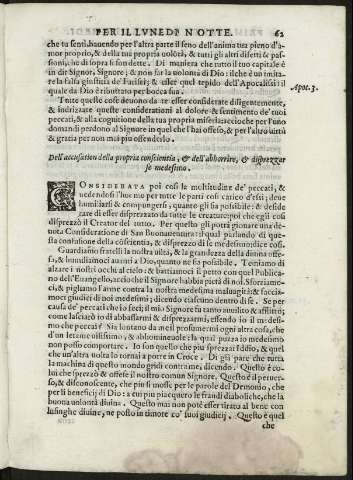 PER IL LVNEDI NOTTE. 62
che tu senti, hauendo per l'altra parte il seno dell'anima tua pieno d'a-
mor proprio, & della tua propria volõtà, & tutti gli altri difetti & pas-
sioni, che di sopra si son dette. Di maniera che tutto il tuo capitale è
in dir Signor, Signore; & non far la volontà di Dio: ilche è un imita-
re la falsa giustitia de' Farisei; & esser quel tepido dell'Apocalissi: il
quale da Dio è ributtato per bocca sua.
Apoc. 3.
Tutte queste cose deuono da te esser considerate diligentemente,
& indrizzate queste considerationi al dolore & sentimento de' tuoi
peccati, & alla cognitione della tua propria miseria: accioche per l'uno
domandi perdono al Signore in quel che l'hai offeso, & per l'altro virtù
& gratia per non mai più offenderlo.
Dell'accusation della propria conscientia, & dell'abborrire, & disprezzar
se medesimo.
CONSIDERATA poi così la moltitudine de' peccati, &
uedendosi l'huomo per tutte le parti così carico d'essi; deue
humiliarsi & compungersi, quanto gli sia possibile: & deside
rare di esser disprezzato da tutte le creature: poi che egli così
disprezzò il Creator del tutto. Per questo gli potrà giouare una de-
uota Consideratione di San Bonauentura: il qual parlando di que-
sta confusione della cõscientia, & disprezzo di se medesimo dice così.
Guardiamo fratelli la nostra uiltà, & la grandezza della diuina offe-
sa, & humiliamoci auanti à Dio, quanto ne sia possibile. Temiamo di
alzare i nostri occhi al cielo: & battiamoci il petto con quel Publica-
no dell'Euangelio, accioche il Signore habbia pietà di noi. Sforziamo-
ci, & pigliamo l'arme contra la nostra medesima malignità: & faccia-
moci giudici di noi medesimi; dicendo ciascuno dentro di se. Se per
causa de' peccati che io feci; il mio Signore fu tanto auuilito & afflitto;
come lasciarò io di abbassarmi & disprezzarmi, essendo io il medesi-
mo che peccai? Sia lontano da me il presumermi ogni altra cosa, che
d'un letame uilissimo, & abhomineuole: la qual puzza io medesimo
non posso comportare. Io son quello che più sprezzai Iddio, & quel
che un'altra uolta lo tornai a porre in Croce. Di già pare che tutta
la machina di questo mondo gridi contra me, dicendo. Questo è co-
lui che sprezzò & offese il nostro comun Signore. Questo è il peruer-
so, & disconoscente, che più si mosse per le parole del Demonio, che
per li beneficij di Dio: a cui più piacquero le frandi diaboliche, che la
buona uolontà diuina. Questo mai non potè esser tirato al bene con
lusinghe diuine, ne posto in timore co' suoi giudicij. Questo è quel
che